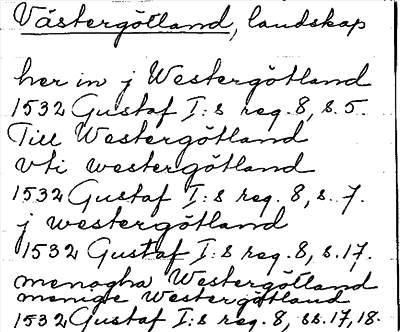 Västergötland, landskap
her in j Westergötland
1532 Gustaf I:s reg. 8, s. 5.
Till Westergötland
vti westergötland
1532 Gustaf I:s reg. 8, s. 7.
j westergötland
1532 Gustaf I:s reg. 8, s. 17.
menogha Westergötland,
menige Westergötland
1532 Gustaf I:s reg. 8, ss. 17, 18.